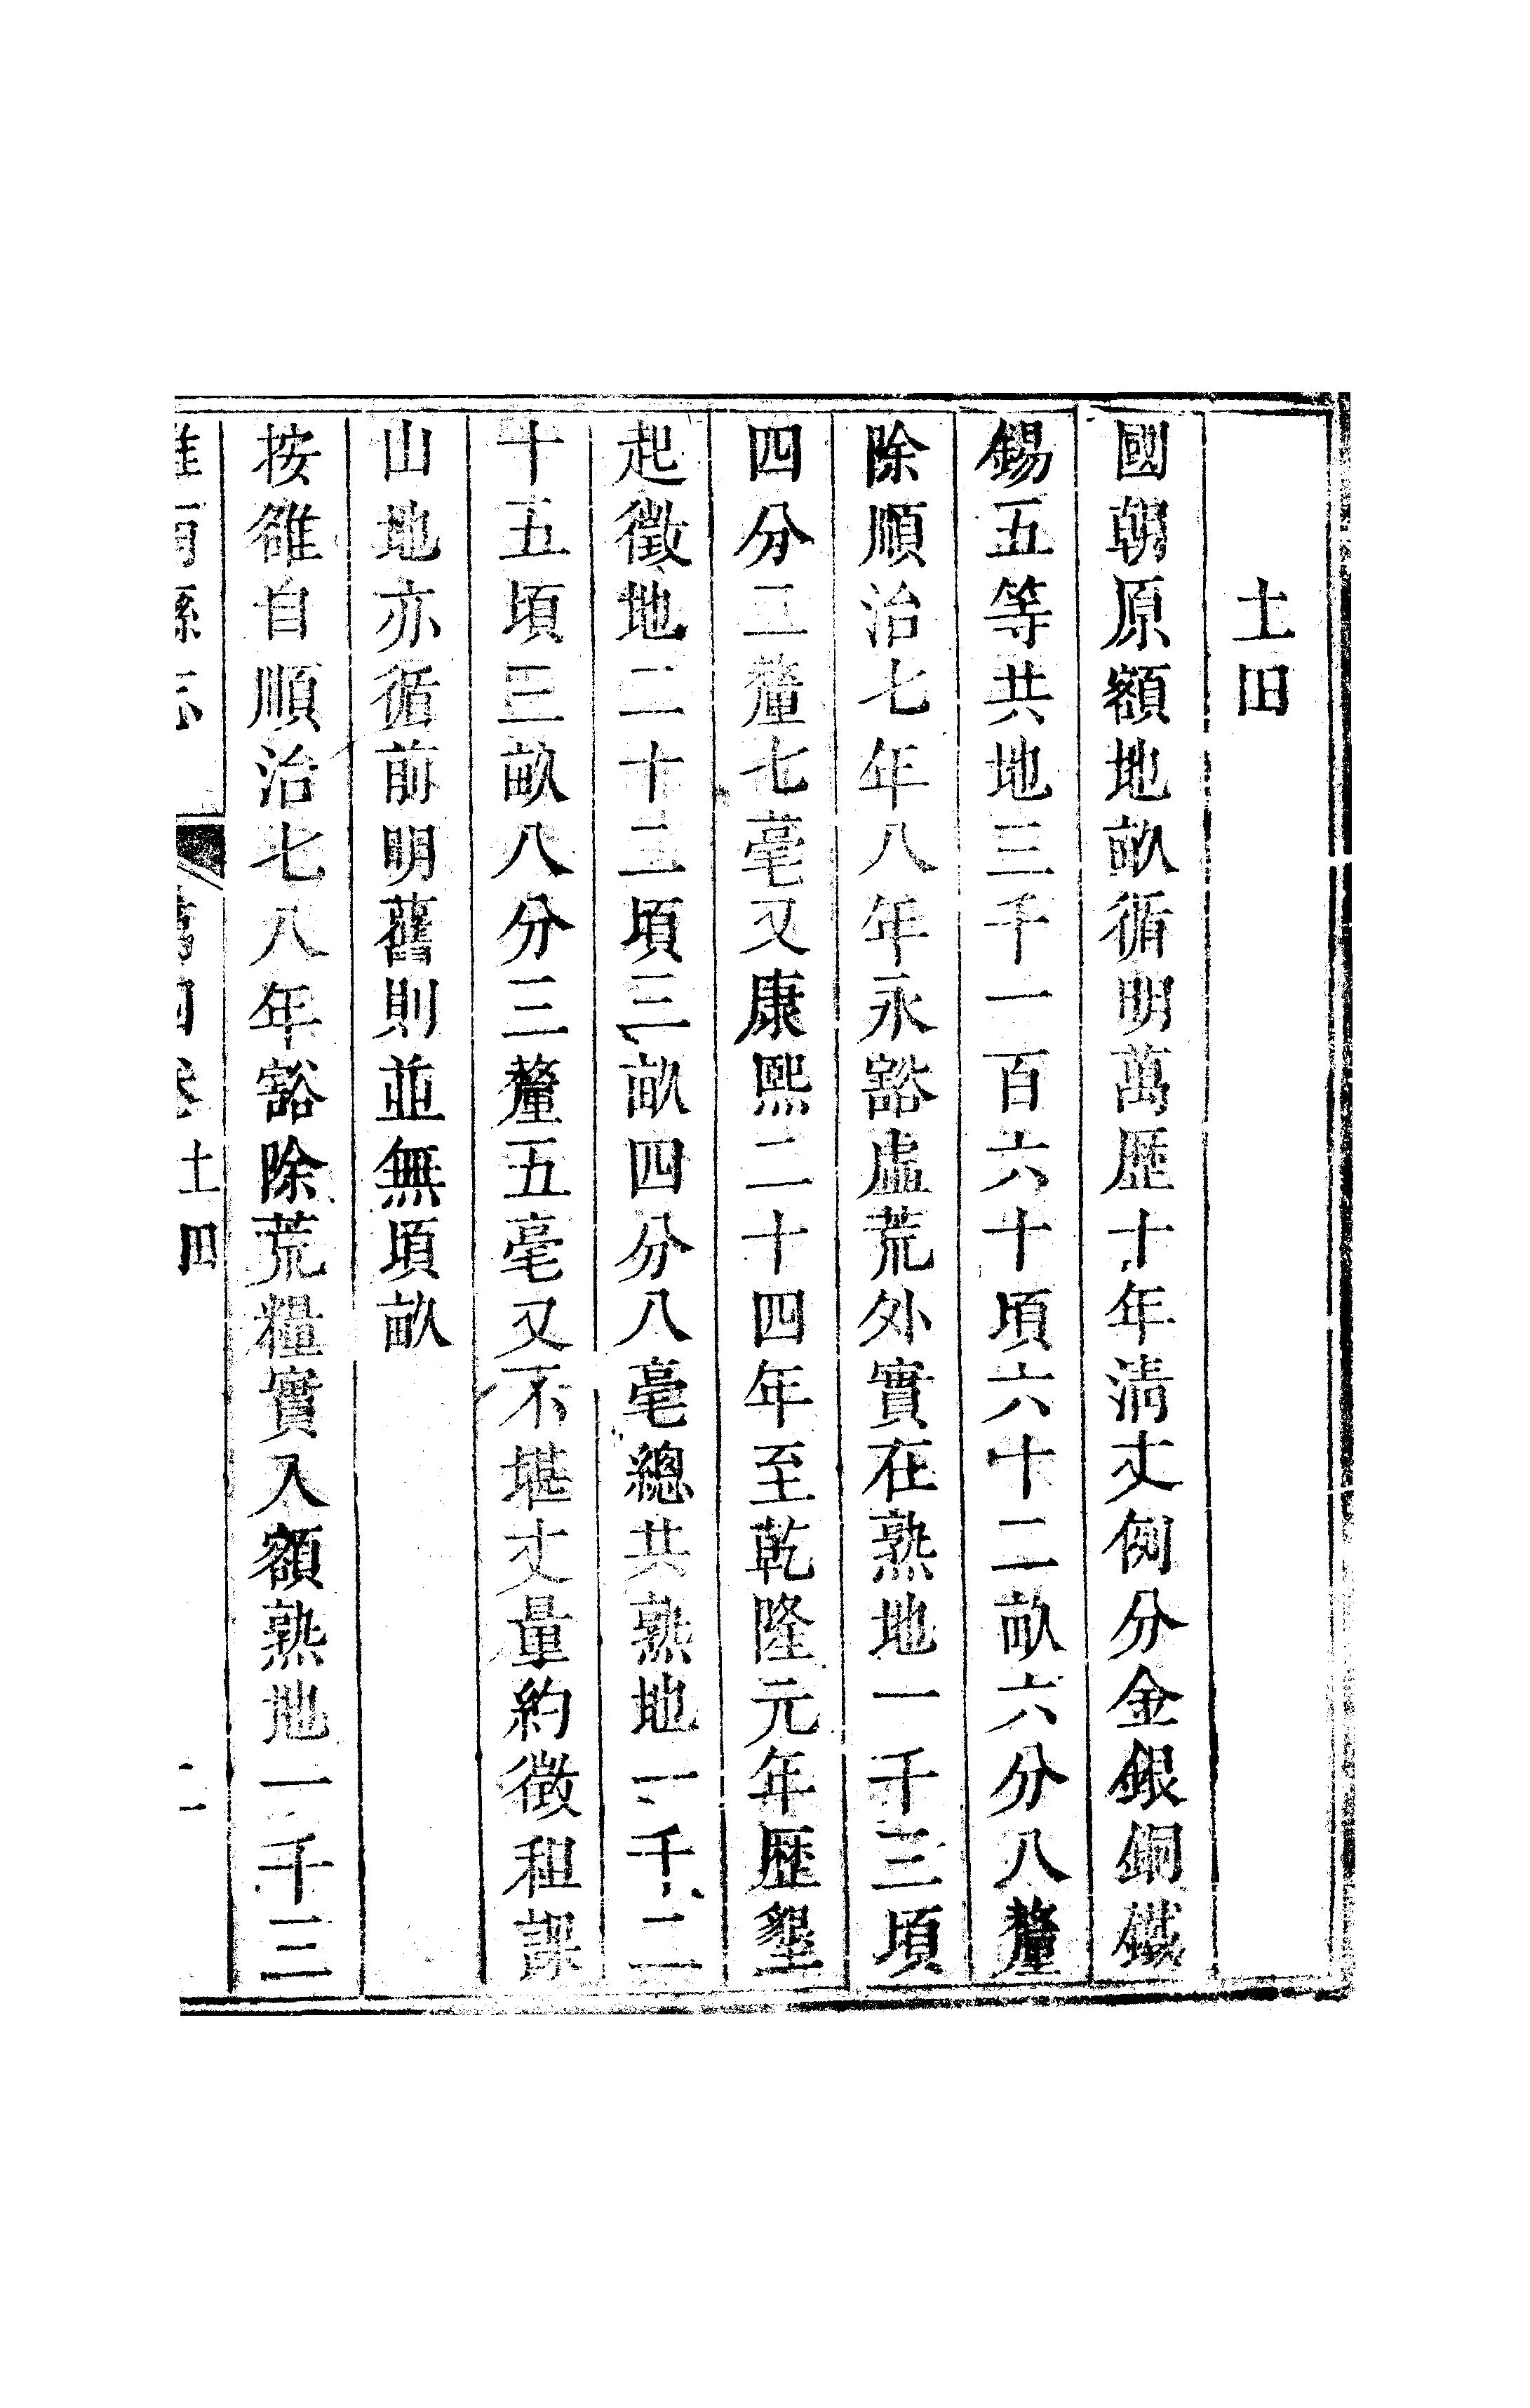 土田
國朝原額地畝循明萬歷十年淸丈例分金銀銅鐵
錫五等共地三千一百六十頃六十二畝六分八釐
除順治七年八年永豁虛荒外實在熟地一千三頃
四分二釐七毫又康熙二十四年至乾隆元年歷墾
起徵地二十二頃三畝四分八毫總共熟地一千二
十五頃三畝八分三釐五毫又不堪丈量約徵租課
山地亦循前明舊則並無頃畝
按雒自順治七八年豁除荒糧實入額熟地一千三
雒南縣志 四卷土田